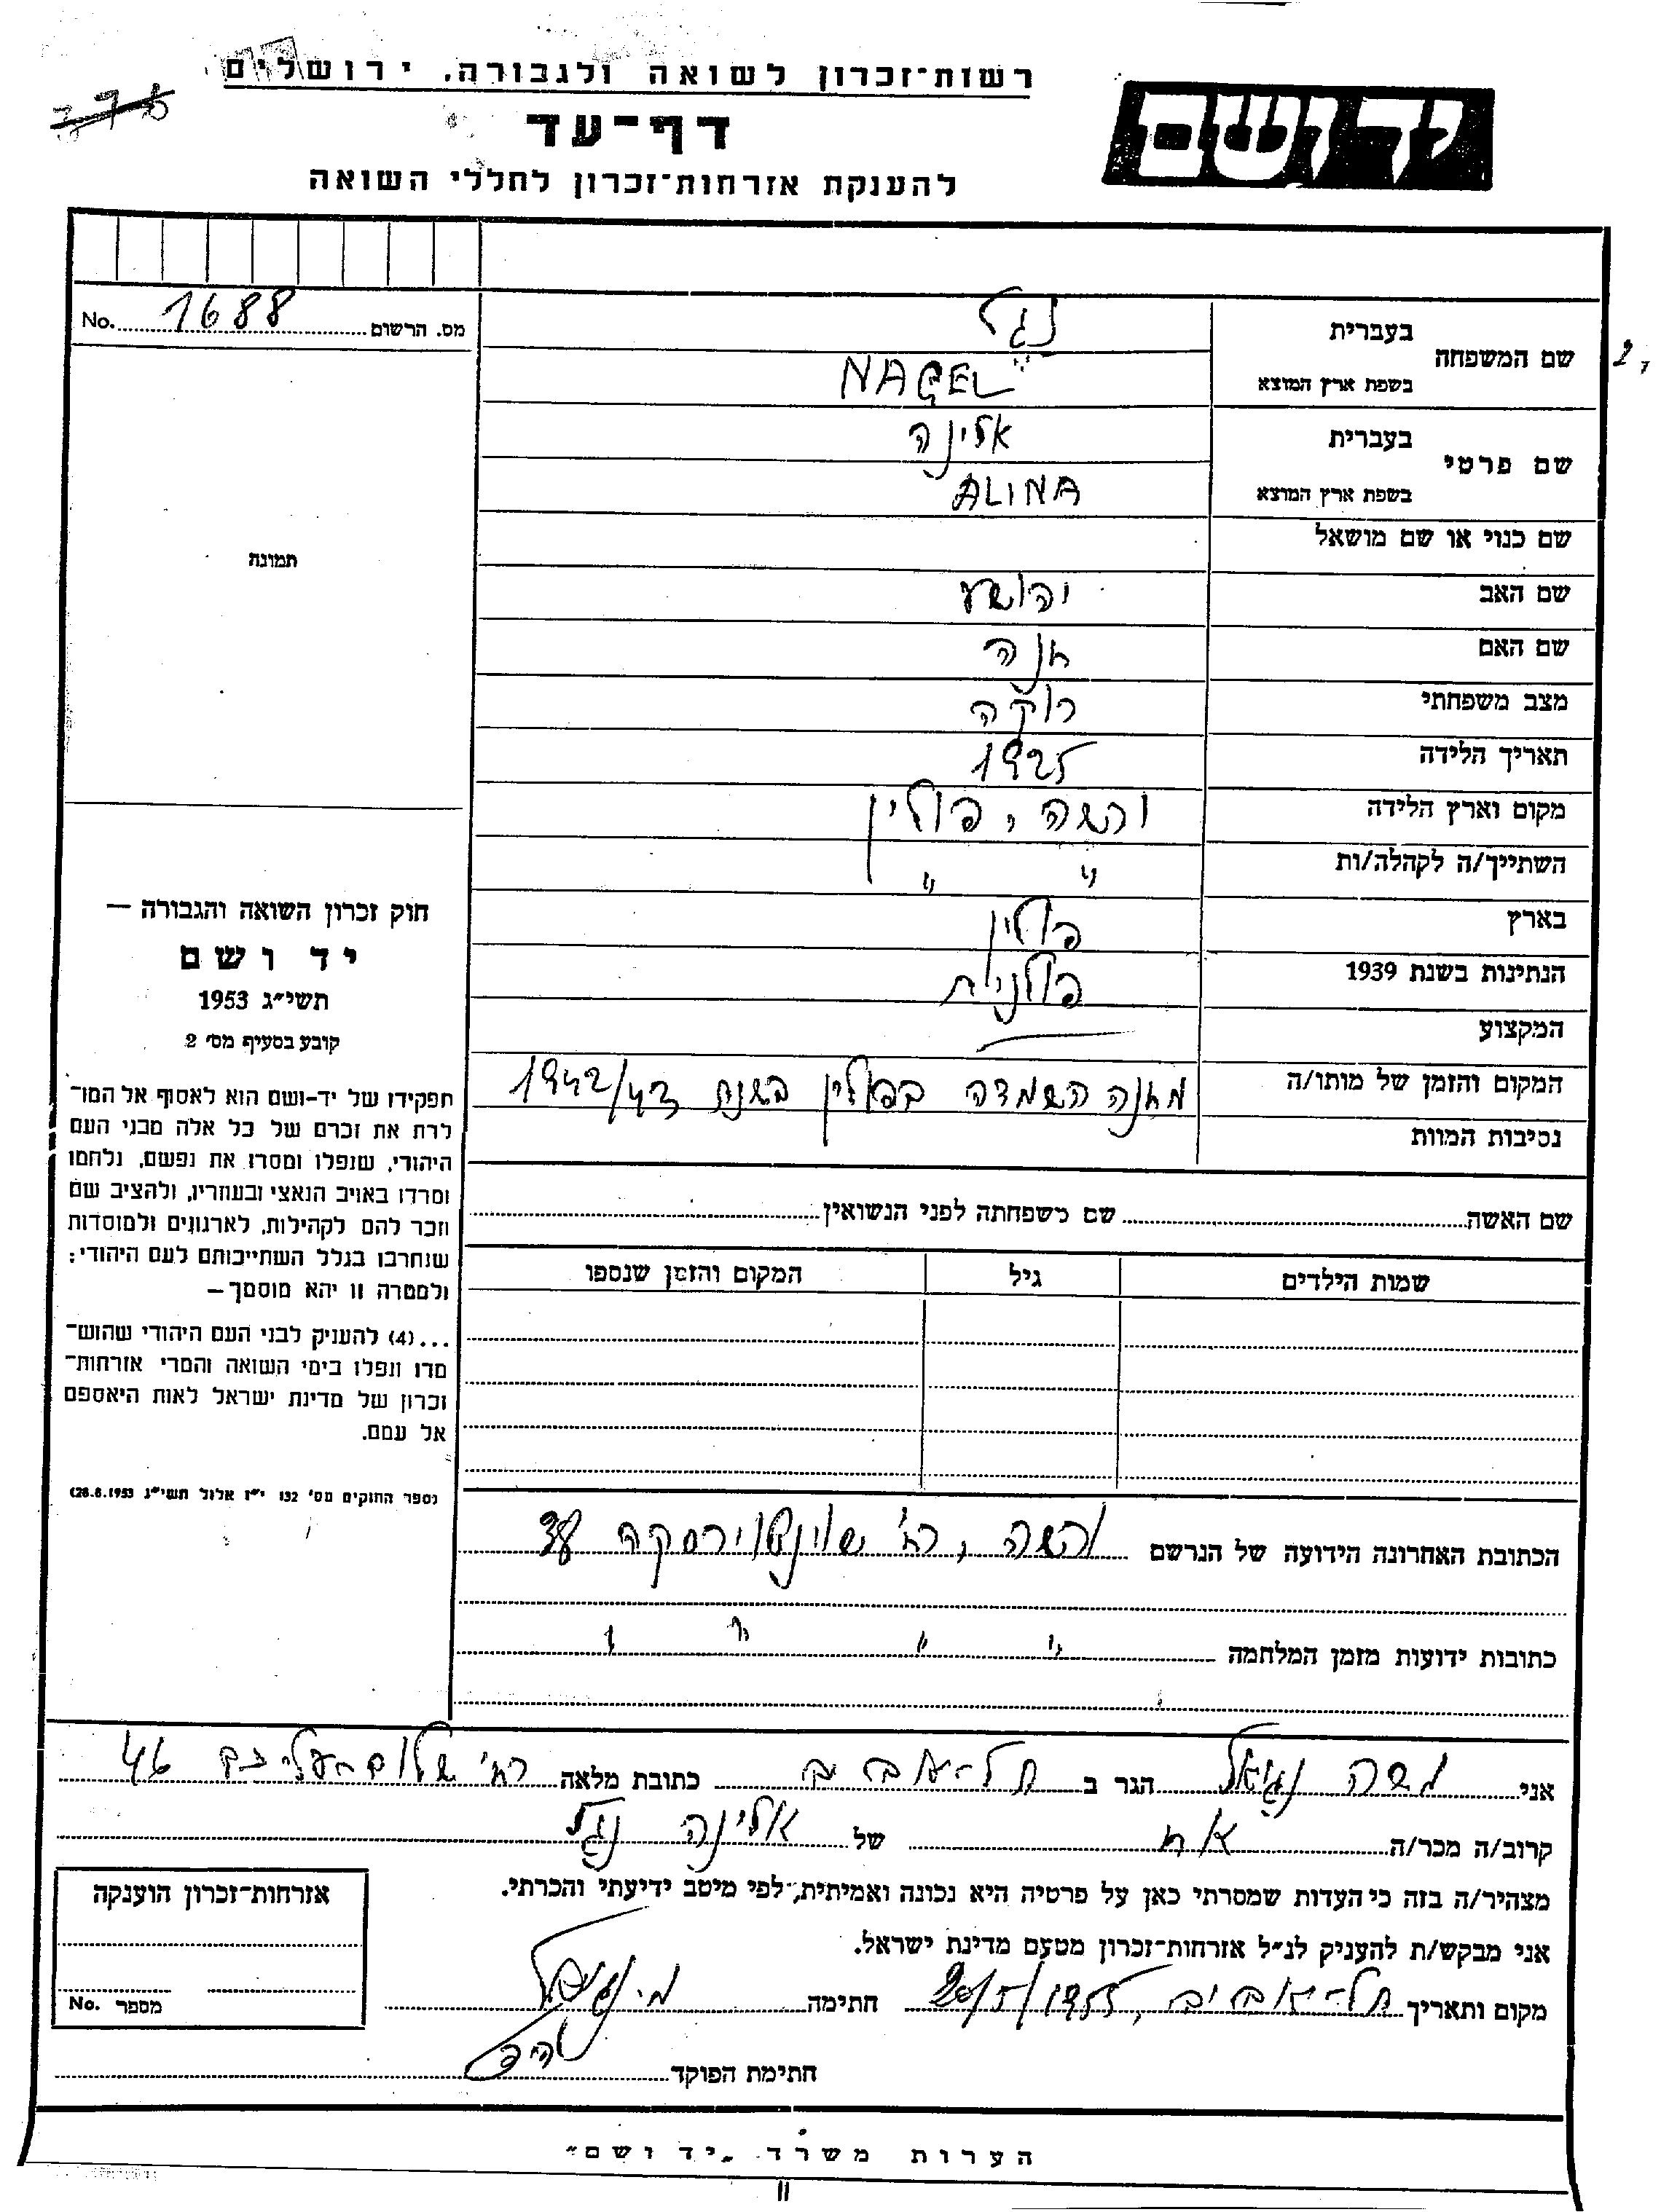 רשות־זכרון לשואה ולגבורה, ירושלים
דף־עד
להענקת אזרחות־זכרון לחללי השואה
ידושם
מס. הרשום 1688 No.
תמונה
שם המשפחה
בעברית נגל
בשפת ארץ המוצא NAGEL
שם פרטי
בעברית אלינה
בשפת ארץ המוצא ALINA
שם כנוי או שם מושאל
שם האב יהושע
שם האם חנה
מצב משפחתי רוקה
תאריך הלידה 1925
מקום וארץ הלידה ורשה, פולין
השתייך/ה לקהלה/ות " "
בארץ פולין
הנתינות בשנת 1939 פולנית
המקצוע
המקום והזמן של מותו/ה מחנה השמדה בפולין בשנת 1942/43
נסיבות המוות
שם האשה שם משפחתה לפני הנשואין
שמות הילדים גיל המקום והזמן שנספו
חוק זכרון השואה והגבורה —
יד ושם
תשי״ג 1953
קובע בסעיף מס׳ 2
תפקידו של יד-ושם הוא לאסוף אל המו־
לדת את זכרם של כל אלה מבני העם
היהודי, שנפלו ומסרו את נפשם, נלחמו
ומרדו באויב הנאצי ובעוזריו, ולהציב שם
וזכר להם לקהילות, לארגונים ולמוסדות
שנחרבו בגלל השתייכותם לעם היהודי;
ולמטרה זו יהא מוסמך —
...(4) להעניק לבני העם היהודי שהוש־
מדו ונפלו בימי השואה והמרי אזרחות־
זכרון של מדינת ישראל לאות היאספם
אל עמם.
(ספר החוקים מס׳ 132 י״ז אלול תשי״ג 28.8.1953)
הכתובת האחרונה הידועה של הנרשם ורשה, רח׳ שוינטוירסקה
כתובות ידועות מזמן המלחמה " " " "
אני משה נגיאל הגר ב תל-אביב כתובת מלאה רח׳ שלום עליכם 46
קרוב/ה מכר/ה אח של אלינה נגל
מצהיר/ה בזה כי העדות שמסרתי כאן על פרטיה היא נכונה ואמיתית, לפי מיטב ידיעתי והכרתי.
אני מבקש/ת להעניק לנ״ל אזרחות־זכרון מטעם מדינת ישראל.
מקום ותאריך תל-אביב, 20/5/1955 חתימה מ. נגיאל
חתימת הפוקד
אזרחות־זכרון הוענקה
מספר No.
הערות משרד „יד ושם״